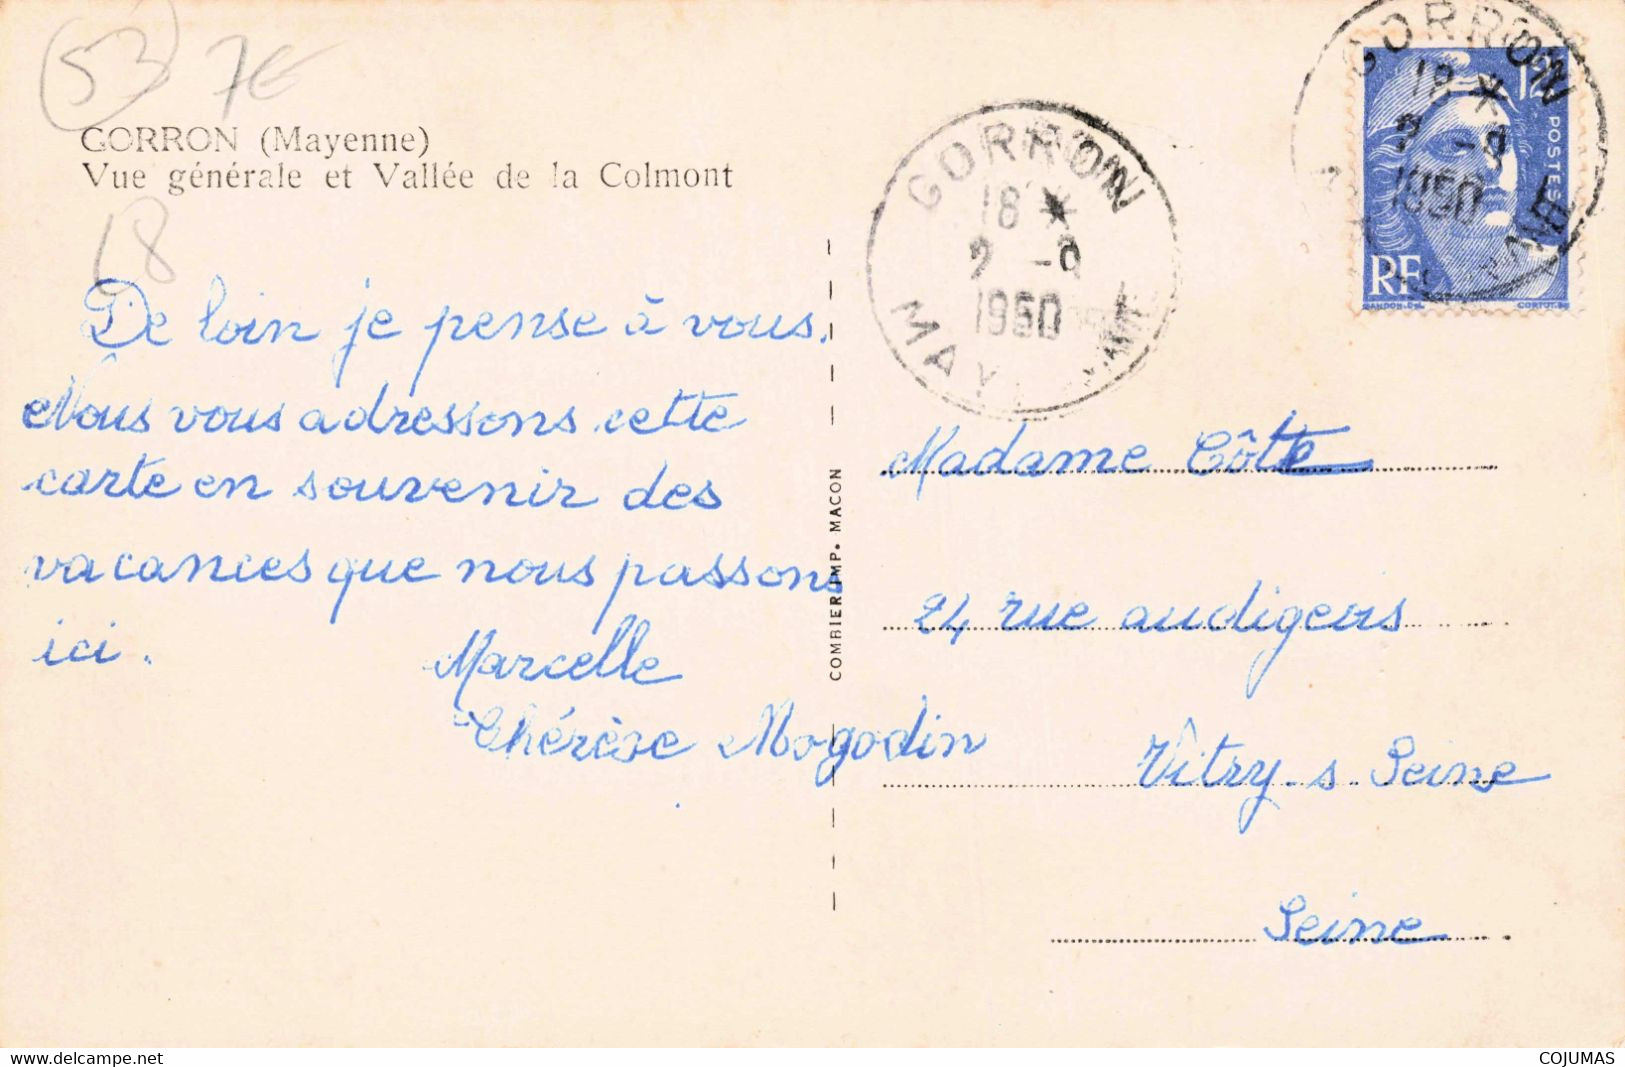 53 7€
GORRON (Mayenne)
Vue générale et Vallée de la Colmont
18
De loin je pense à vous.
Nous vous adressons cette
carte en souvenir des
vacances que nous passons
ici.
Marcelle
Thérèse Mogodin
COMBIER IMP. MACON
GORRON
18 *
1950
MAYENNE
GORRON
18 *
1950
12
POSTES
RF
GANDON
CORTOT
Madame Côtte
24 rue audigeois
Vitry-s Seine
Seine
COJUMAS
www.delcampe.net